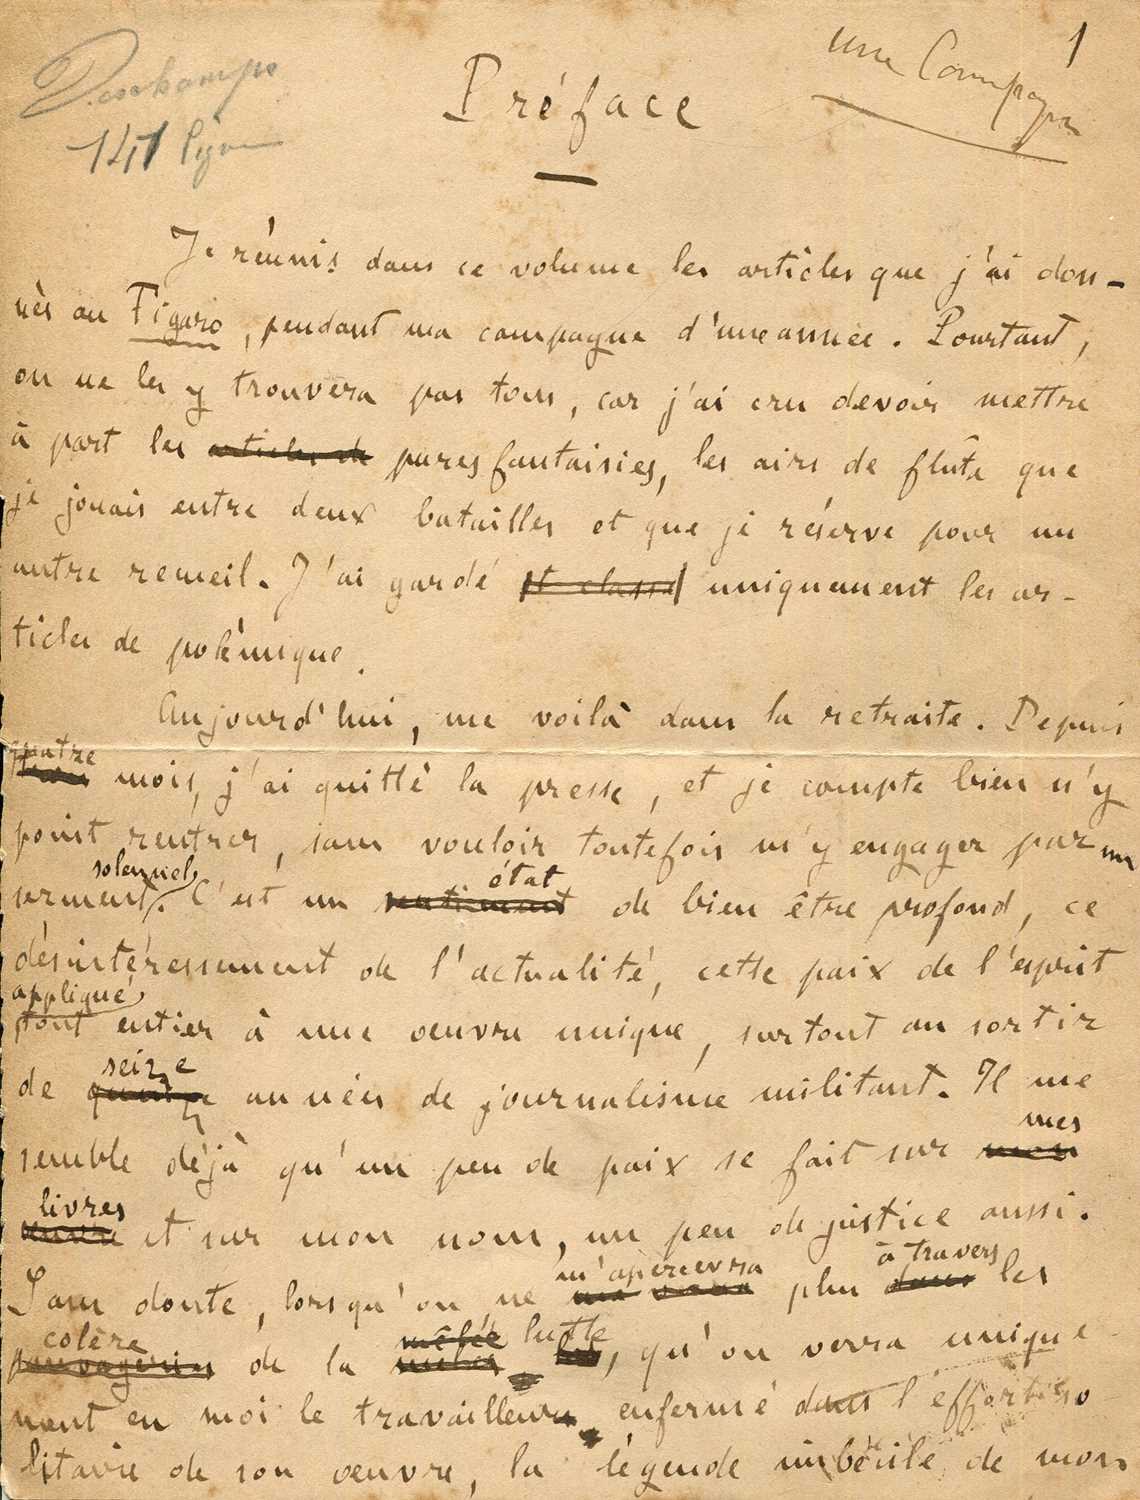 Deschamps
141
Préface
une Campagne
1
Je réunis dans ce volume les articles que j'ai don-
nés au Figaro, pendant ma campagne d'une année. Pourtant,
on ne les y trouvera pas tous, car j'ai cru devoir mettre
à part les articles de pures fantaisies, les airs de flûte que
je jouais entre deux batailles et que je réserve pour un
autre recueil. J'ai gardé et classé uniquement les ar-
ticles de polémique.
Aujourd'hui, me voilà dans la retraite. Depuis
quatre
mois, j'ai quitté la presse, et je compte bien n'y
point rentrer, sans vouloir toutefois m'y engager par un
solennel
serment. C'est un sentiment état de bien être profond, ce
désintéressement de l'actualité, cette paix de l'esprit
appliqué
tout entier à une oeuvre unique, surtout au sortir
seize
de quinze années de journalisme militant. Il me
mes
semble déjà qu'un peu de paix se fait sur mon
livres
oeuvre et sur mon nom, un peu de justice aussi.
m'apercevra à travers
Sans doute, lorsqu'on ne me verra plus dans les
colère mêlée lutte
de la, qu'on verra unique
ment en moi le travailleur enfermé dans l'effort so
litaire de son oeuvre, la légende imbécile de mon